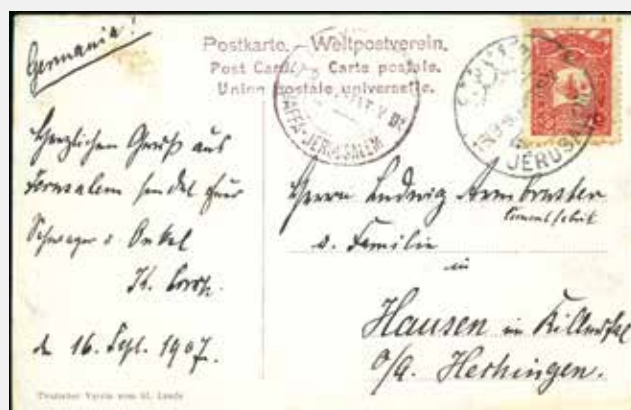 Germania!
Postkarte. – Weltpostverein.
Post Card – Carte postale.
Union postale universelle.
JAFFA-JERUSALEM
JERUSALEM
Herzlichen Gruß aus
Jerusalem sendet Euer
Schwager u Onkel
d 16. Sept. 1907.
Herrn Ludwig Armbruster
Cementfabrik
u. Familie
in
Hausen im Killerthal
o/a. Hechingen.
Deutscher Verein vom hl. Lande